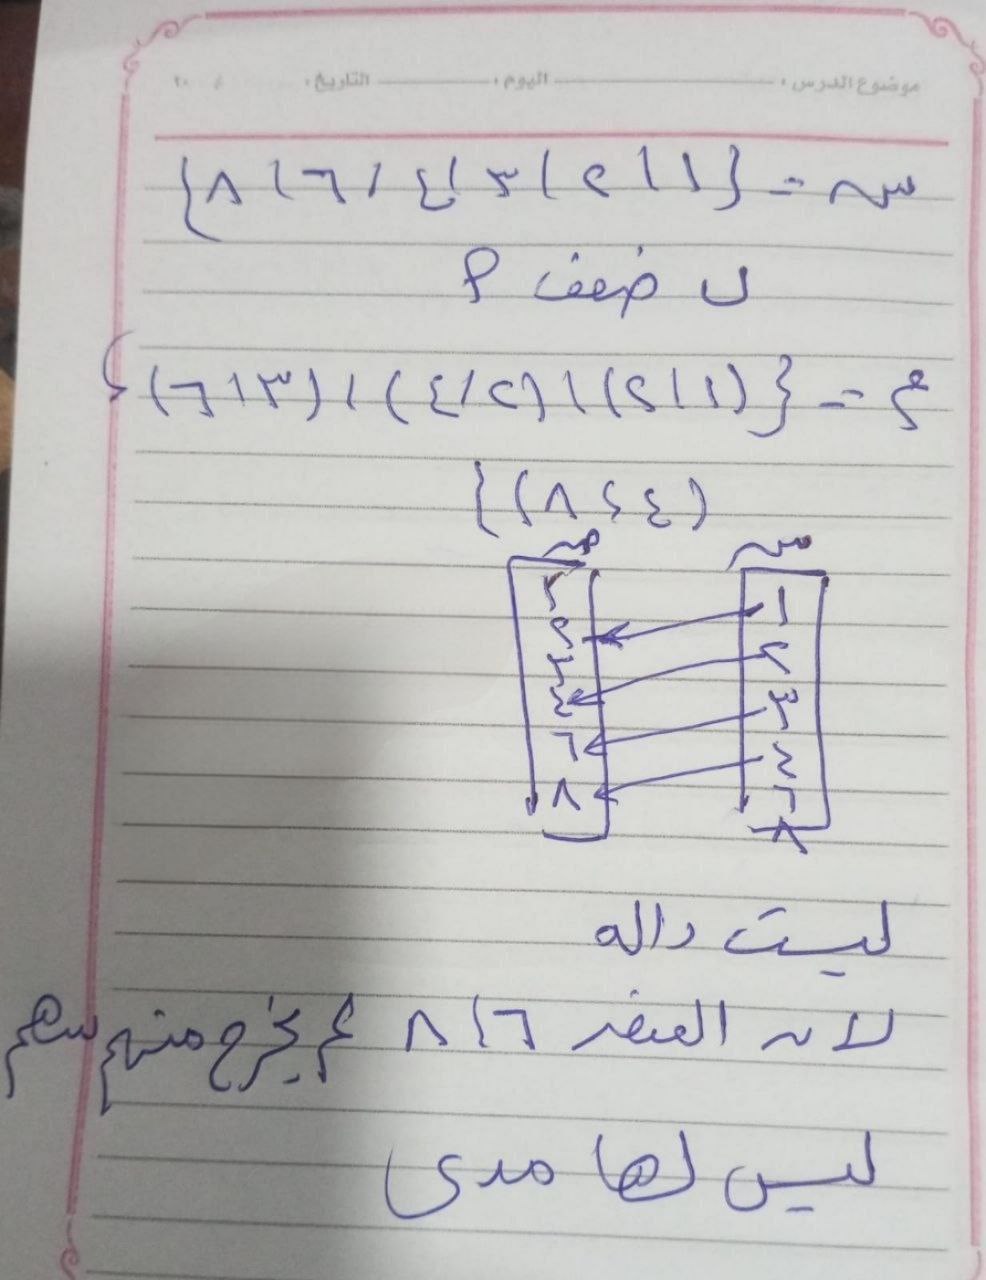 موضوع الدرس : اليوم : التاريخ : / ٢٠
س = {١ ، ٢ ، ٣ ، ٤ ، ٦ ، ٨}
ب ضعف م
ع = {(١ ، ٢) ، (٢ ، ٤) ، (٣ ، ٦) ،
(٤ ، ٨)}
س
١
٢
٣
٤
٦
٨
١
٢
٣
٤
٦
٨
ليست داله
لان العنصر ٦ ، ٨ لم يخرج منهم سهم
ليس لها مدى